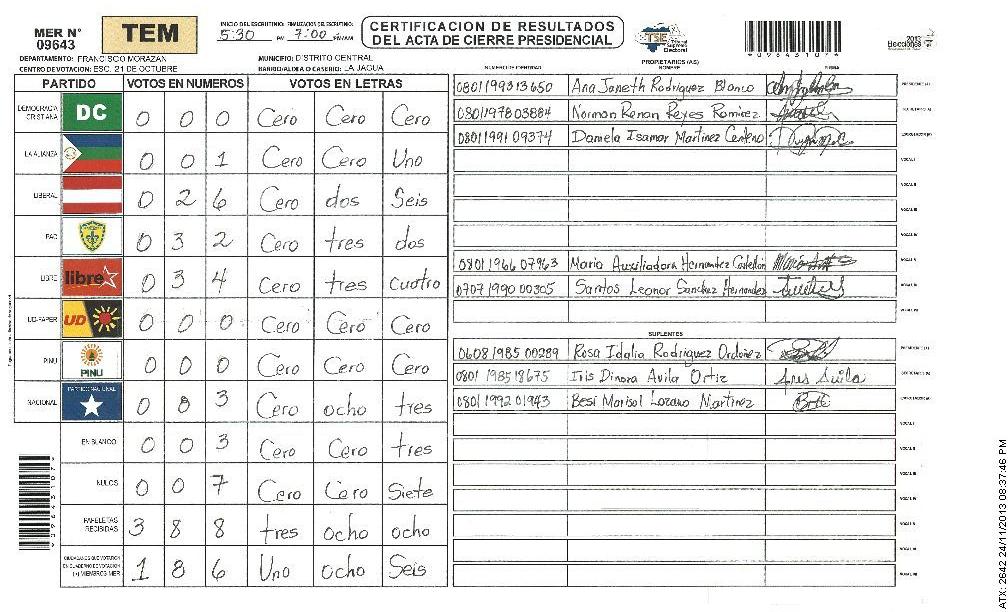 MER N°
09643
TEM
INICIO DEL ESCRUTINIO: FINALIZACION DEL ESCRUTINIO:
5:30 PM 7:00
CERTIFICACION DE RESULTADOS
DEL ACTA DE CIERRE PRESIDENCIAL
TSE
Tribunal Supremo Electoral
2013
Elecciones
DEPARTAMENTO: FRANCISCO MORAZAN
MUNICIPIO: DISTRITO CENTRAL
CENTRO DE VOTACION: ESC. 21 DE OCTUBRE
BARRIO/ALDEA O CASERIO: LA JAGUA
PARTIDO VOTOS EN NUMEROS VOTOS EN LETRAS
DEMOCRACIA CRISTIANA DC 0 0 0 Cero Cero Cero
LA ALIANZA 0 0 1 Cero Cero Uno
LIBERAL 0 2 6 Cero dos Seis
PAC 0 3 2 Cero tres dos
LIBRE libre 0 3 4 Cero tres cuatro
UD-FAPER UD 0 0 0 Cero Cero Cero
PINU PINU 0 0 0 Cero Cero Cero
NACIONAL PARTIDO NACIONAL 0 8 3 Cero ocho tres
EN BLANCO 0 0 3 Cero Cero tres
NULOS 0 0 7 Cero Cero Siete
PAPELETAS RECIBIDAS 3 8 8 tres ocho ocho
CIUDADANOS QUE VOTARON EN CUADERNO DE VOTACION (+) MIEMBROS MER 1 8 6 Uno ocho Seis
PROPIETARIOS (AS)
NUMERO DE IDENTIDAD NOMBRE FIRMA
0801199313650 Ana Janeth Rodriguez Blanco PRESIDENTE (A)
0801197803884 Norman Renan Reyes Ramirez SECRETARIO (A)
0801199109374 Daniela Isamar Martinez Centeno ESCRUTADOR (A)
VOCAL I
VOCAL II
VOCAL III
VOCAL IV
0801196607963 Maria Auxiliadora Hernandez Castellon VOCAL V
0707199000305 Santos Leonor Sanchez Hernandez
SUPLENTES
0608198500289 Rosa Idalia Rodriguez Ordoñez PRESIDENTE (A)
0801198518675 Iris Dinora Avila Ortiz SECRETARIO (A)
0801199201943 Besi Marisol Lozano Martinez ESCRUTADOR (A)
VOCAL I
VOCAL II
VOCAL III
VOCAL IV
VOCAL V
ATX: 2642 24/11/2013 08:37:46 PM